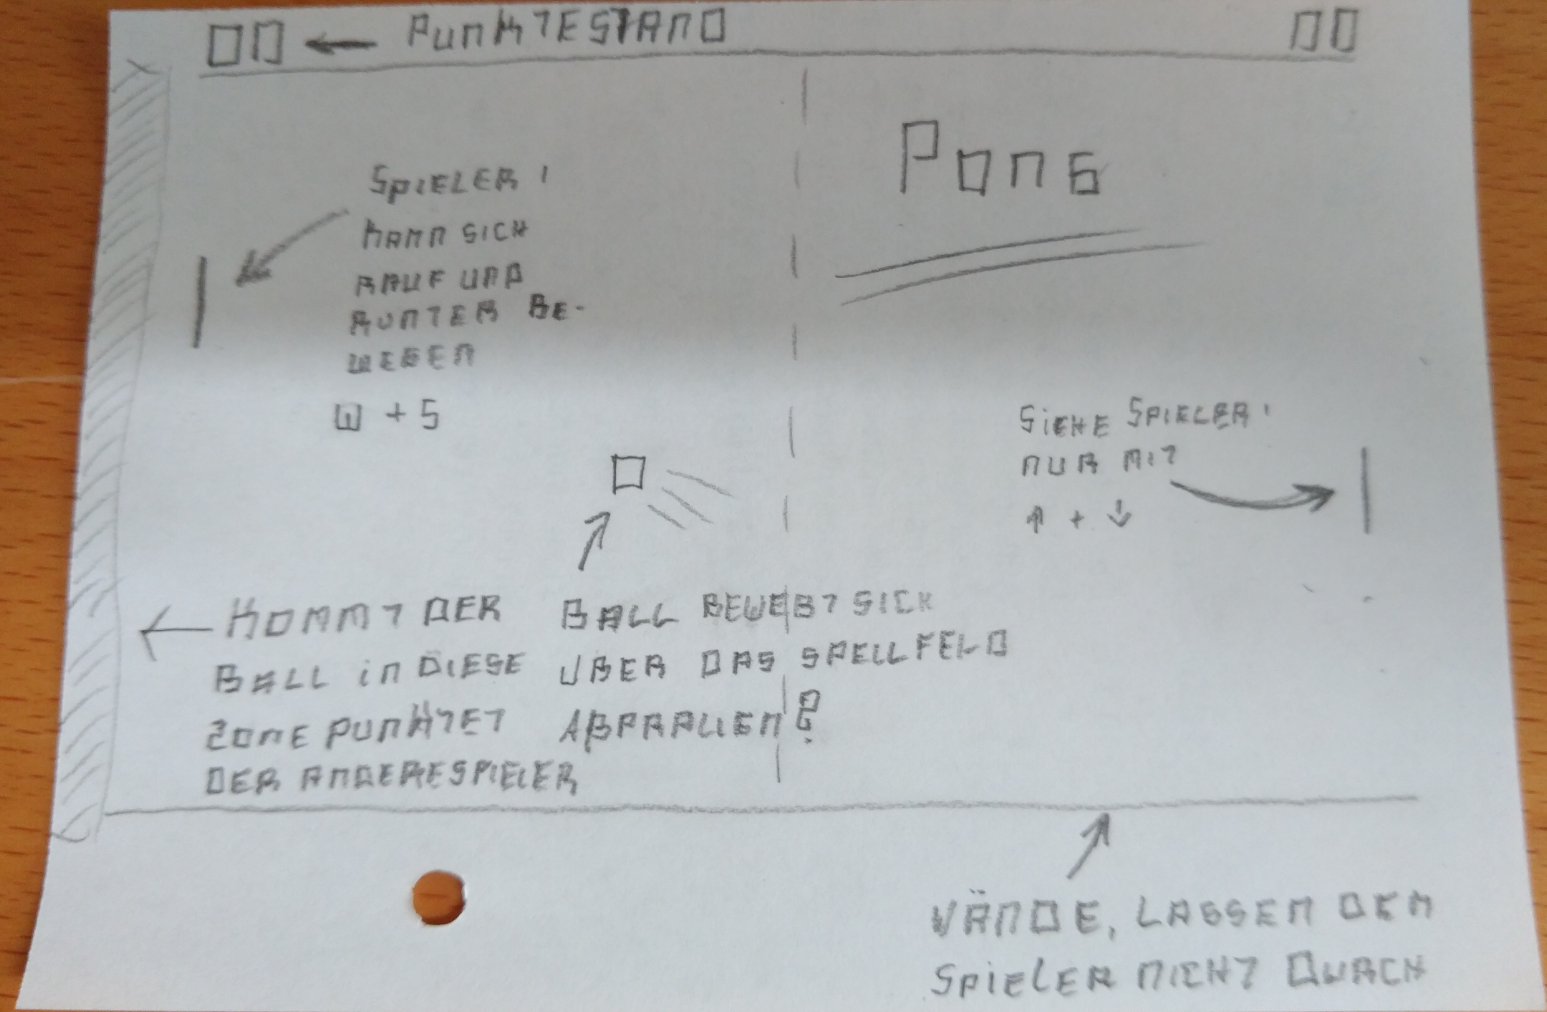 00 ← PUNKTESTAND 00
PONG
SPIELER 1
KANN SICH
RAUF UND
RUNTER BE-
WEGEN
W + S
SIEHE SPIELER 1
NUR MIT
↑ + ↓
← KOMMT DER
BALL IN DIESE
ZONE PUNKTET
DER ANDERE SPIELER
BALL BEWEGT SICH
ÜBER DAS SPELLFELD
ABPRALLEN?
WÄNDE, LASSEN DEN
SPIELER NICHT DURCH